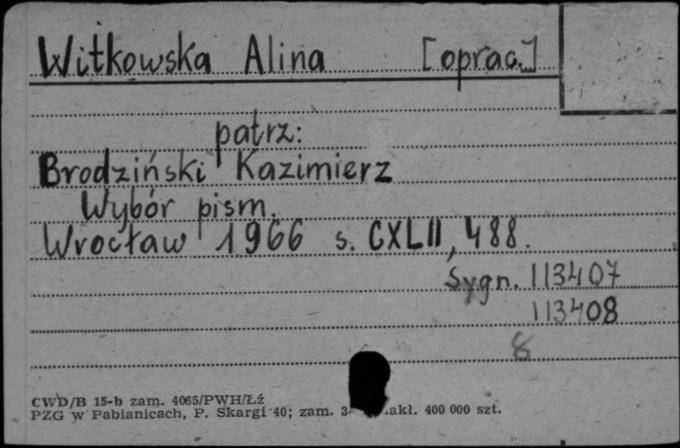 Witkowska Alina [oprac.]
patrz:
Brodziński Kazimierz
Wybór pism.
Wrocław 1966 s. CXLII, 488.
Sygn. 113407
113408
8
CWD/B 15-b zam. 4065/PWH/Łź
PZG w Pabianicach, P. Skargi 40; zam. 3 akł. 400 000 szt.